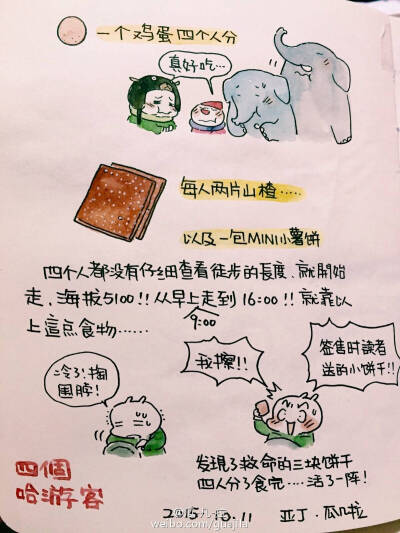 一个鸡蛋四个人分
真好吃…
每人两片山楂……
以及一包MINI小薯饼
四个人都没有仔细查看徒步的長度，就開始
走，海拔5100!!从早上走到16:00!!就靠以
9:00
上這点食物……
冷了!掏
围脖!
我擦!!
签售时读者
送的小饼干!!
四個
哈游客
發現了救命的三块饼干
四人分了食完…活了一陣!
2015.10.11
亚丁·瓜几拉
weibo.com/guajila